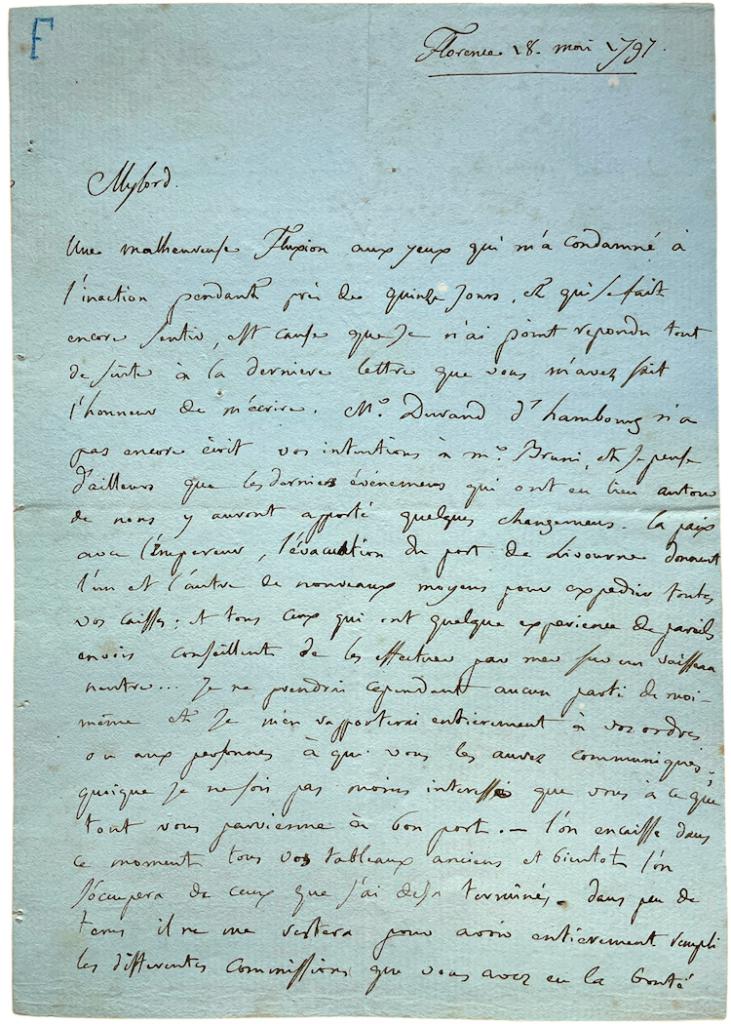 F
Florence 18. mai 1797.
Mylord.
Une malheureuse Fluxion aux yeux qui m'a condamné à
l'inaction pendant près de quinze Jours, et qui se fait
encore sentir, est cause que Je n'ai point repondu tout
de suite à la derniere lettre que vous m'avez fait
l'honneur de m'écrire. Mr. Durand d'hambourg n'a
pas encore écrit vos intentions à mr. Bruni, et Je pense
d'ailleurs que les derniers événemens qui ont eu lieu autour
de nous y auront apporté quelques changemens. la paix
avec l'Empereur, l'évacuation du port de Livourne donnent
l'un et l'autre de nouveaux moyens pour expedier toutes
vos caisses; et tous ceux qui ont quelque experience de pareils
envois conseillent de les effectuer par mer sur un vaisseau
neutre... Je ne prendrai cependant aucun parti de moi-
même et Je m'en rapporterai entièrement à vos ordres
ou aux personnes à qui vous les aurez communiqués;
quoique Je ne sois pas moins interessé que vous à ce que
tout vous parvienne à bon port. — l'on encaisse dans
ce moment tous vos tableaux anciens et bientot l'on
s'ocupera de ceux que j'ai deja terminés. dans peu de
tems il ne me restera pour avoir entièrement rempli
les differentes Commissions que vous avez eu la bonté